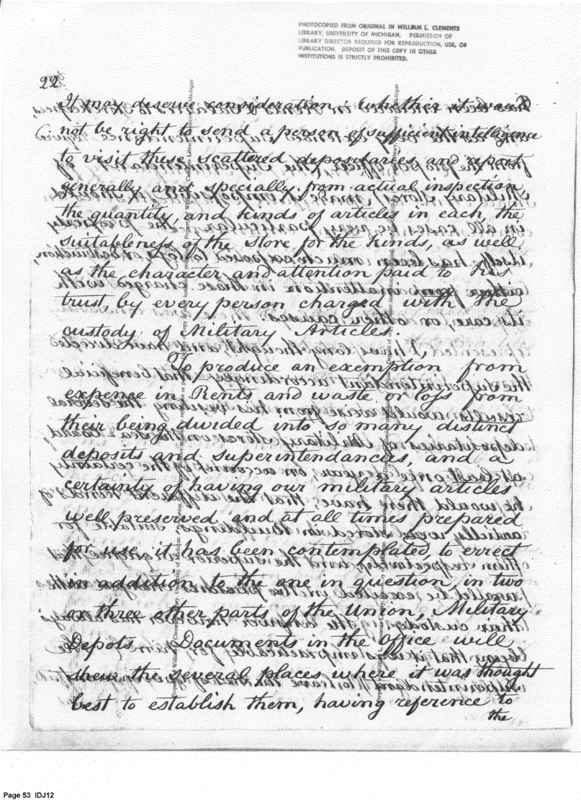 PHOTOCOPIED FROM ORIGINAL IN WILLIAM L. CLEMENTS
LIBRARY, UNIVERSITY OF MICHIGAN. PERMISSION OF
LIBRARY DIRECTOR REQUIRED FOR REPRODUCTION, USE, OR
PUBLICATION. DEPOSIT OF THIS COPY IN OTHER
INSTITUTIONS IS STRICTLY PROHIBITED.
22
It may deserve consideration whether it would
not be right to send a person of sufficient intelligence
to visit these scattered depositaries and report
generally and specially from actual inspection
the quantity, and kinds of articles in each, the
suitableness of the store for the kinds, as well
as the character and attention paid to his
trust, by every person charged with the
custody of Military Articles.
To produce an exemption from
expence in Rents and waste or loss from
their being divided into so many distinct
deposits and superintendances, and a
certainty of having our military articles
well preserved, and at all times prepared
for use, it has been contemplated, to errect
in addition to the one in question, in two
or three other parts of the Union, Military
Depots. Documents in the office will
shew the several places where it was thought
best to establish them, having reference to
the
Page 53 IDJ12